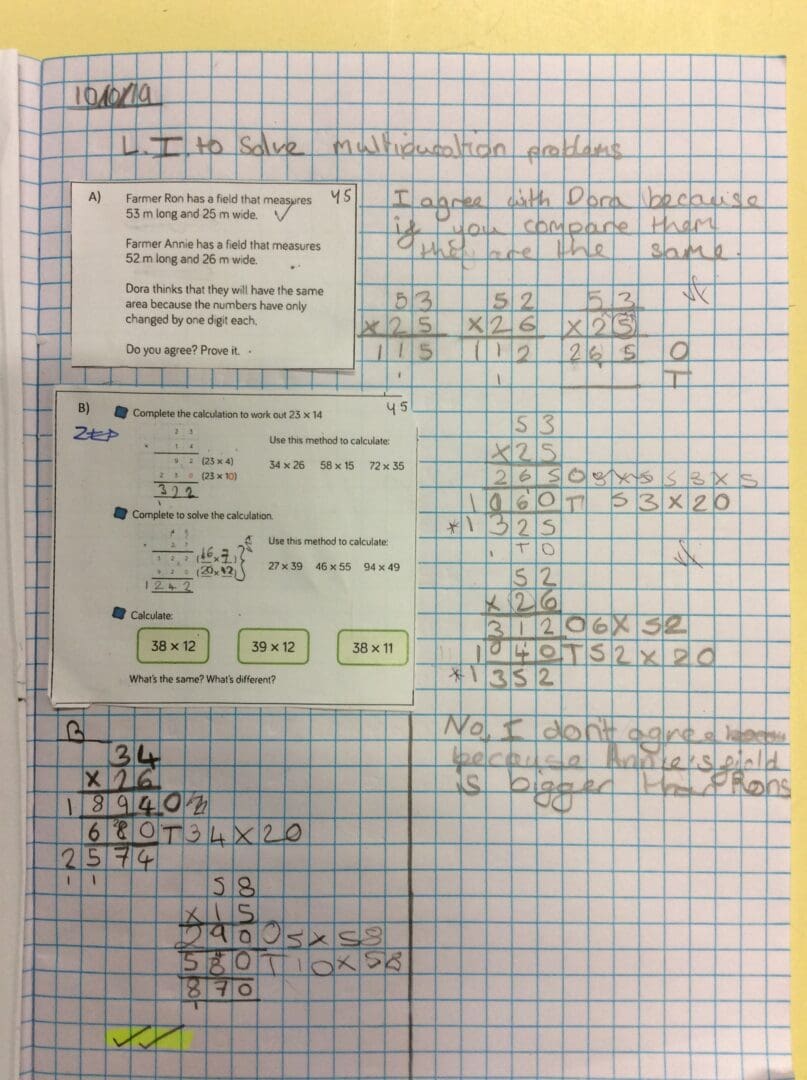 10/10/19
L.I. to Solve multipucation problems
A) Farmer Ron has a field that measures
53 m long and 25 m wide.
Farmer Annie has a field that measures
52 m long and 26 m wide.
Dora thinks that they will have the same
area because the numbers have only
changed by one digit each.
Do you agree? Prove it.
Y5
I agree with Dora because
if you compare them
they are the same.
53 52 53
×25 ×26 ×25
115 112 265 O
1 1 T
B) Complete the calculation to work out 23 × 14
Y5
2 3
× 1 4
9 2 (23 × 4)
2 3 0 (23 × 10)
322
1
Use this method to calculate:
34 × 26 58 × 15 72 × 35
Complete to solve the calculation.
3 2 2
9 2 0
1242
Use this method to calculate:
27 × 39 46 × 55 94 × 49
Calculate:
38 × 12 39 × 12 38 × 11
What's the same? What's different?
53
×25
265 O 53×5
1060 T 53×20
*1325
1 T O
52
×26
312 O 6×52
1040 T 52×20
*1352
No, I don't agree
because Annie's field
is bigger than Rons
B
34
×26
1894 O
680 T 34×20
2574
1 1
58
×15
290 O 5×58
580 T 10×58
870
1